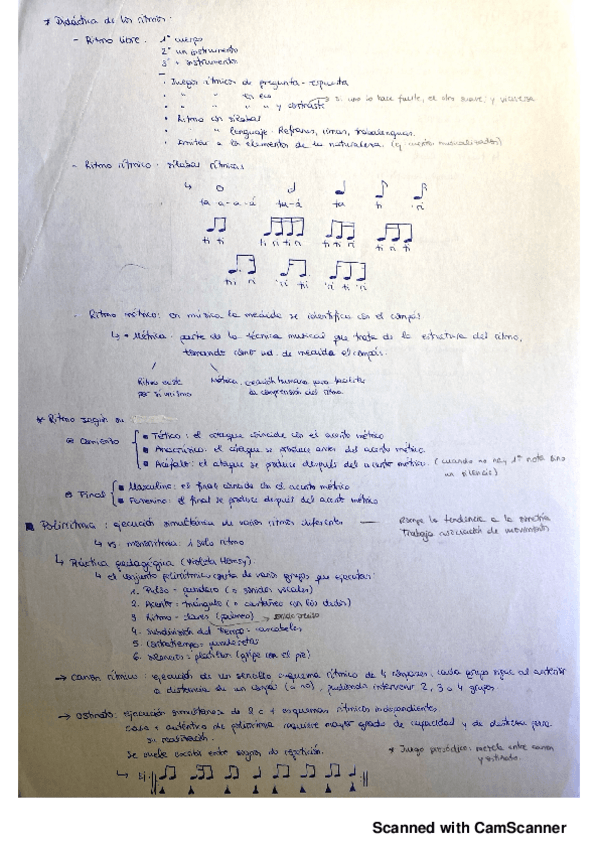 * Didáctica de los ritmos:
- Ritmo libre. 1º cuerpo
2º un instrumento
3º + instrumento
· Juegos rítmicos de pregunta-respuesta
· " " en eco
· " " " y contraste → si uno lo hace fuerte, el otro suave; y viceversa
· Ritmo con sílabas
· " lenguaje. Refranes, rimas, trabalenguas.
· Imitar a los elementos de la naturaleza (ej. cuentos musicalizados)
- Ritmo rítmico. sílabas rítmicas
ta-a-a-á ta-á ta ti ri
ti ti
- Ritmo métrico: en música la medida se identifica con el compás
↳ • Métrica. parte de la técnica musical que trata de la estructura del ritmo,
tomando como ud. de medida el compás.
Ritmo existe Métrica. creación humana para facilitar
por si mismo la comprensión del ritmo.
* Ritmo según su
Comienzo
Tético: el ataque coincide con el acento métrico
Anacrúsico: el ataque se produce antes del acento métrico.
Acéfalo: el ataque se produce después del acento métrico. (cuando no hay 1ª nota sino
un silencio)
Final
Masculino: el final coincide con el acento métrico
Femenino: el final se produce después del acento métrico
■ Polirritmia: ejecución simultánea de varios ritmos diferentes — rompe la tendencia a la simetría
Trabaja disociación de movimientos
↳ vs. monorritmia: 1 solo ritmo
↳ Práctica pedagógica (Violeta Hemsy).
↳ el conjunto polirrítmico consta de varios grupos que ejecutan:
1. Pulso - pandero (o sonidos vocales)
2. Acento - triángulo (o castañeo con los dedos)
3. Ritmo - claves (palmeo)
4. Subdivisión del tiempo - cascabeles
5. Contratiempo - panderetas
6. Silencios - platillos (golpe con el pie)
→ Canon rítmico: ejecución de un sencillo esquema rítmico de 4 compases, cada grupo sigue al anterior
a distancia de un compás (o no), pudiendo intervenir 2, 3 o 4 grupos.
→ Ostinato: ejecución simultánea de 2 o + esquemas rítmicos independientes.
caso + auténtico de polirritmia requiere mayor grado de capacidad y de destreza para
su realización.
Se suele escribir entre signos de repetición.
* Juego prosódico: mezcla entre canon
y ostinato.
Scanned with CamScanner